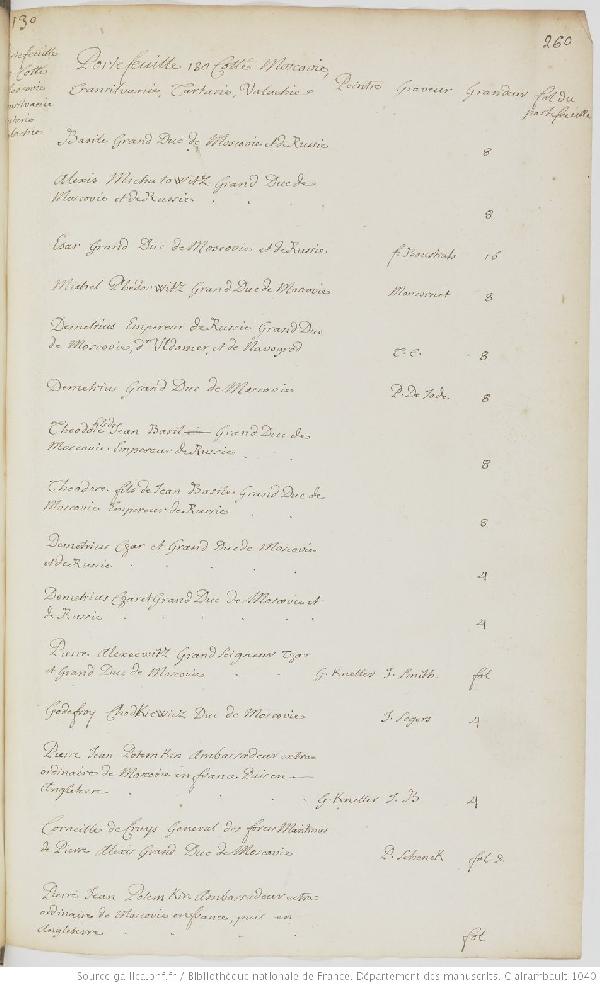 130
260
Portefeuille 130 Cotté Moscovie,
Transilvanie, Tartarie, Valachie Peintre Graveur Grandeur fol du
portefeuille
Basile Grand Duc de Moscovie et de Russie 8
Alexis Michalowitz Grand Duc de
Moscovie et de Russie 8
Czar Grand Duc de Moscovie et de Russie 16
Michel Phedorwitz Grand Duc de Moscovie Moncornet 8
Demetrius Empereur de Russie Grand Duc
de Moscovie, d'Uldomer, et de Navogrod C. C. 8
Demetrius Grand Duc de Moscovie P. De Jode 8
Theodore Jean Basil Grand Duc de
Moscovie Empereur de Russie 8
Theodore fils de Jean Basile Grand Duc de
Moscovie Empereur de Russie 8
Demetrius Czar et Grand Duc de Moscovie
et de Russie 4
Demetrius Czar et Grand Duc de Moscovie et
de Russie 4
Pierre Alexeewitz Grand Seigneur Czar
et Grand Duc de Moscovie G. Kneller J. Smith fol
Godefroy Chodkiewietz Duc de Moscovie J. Segers 4
Pierre Jean Potemkin Ambassadeur extra
ordinaire de Moscovie en france Puis en
Angleterre G. Kneller J. B 4
Corneille de Cruys General des forces Maritimes
de Pierre Alexis Grand Duc de Moscovie P. Schenck fol d.
Pierre Jean Potemkin Ambassadeur extra
ordinaire de Moscovie en france, puis en
Angleterre fol
Source gallica.bnf.fr / Bibliothèque nationale de France. Département des manuscrits. Clairambault 1040